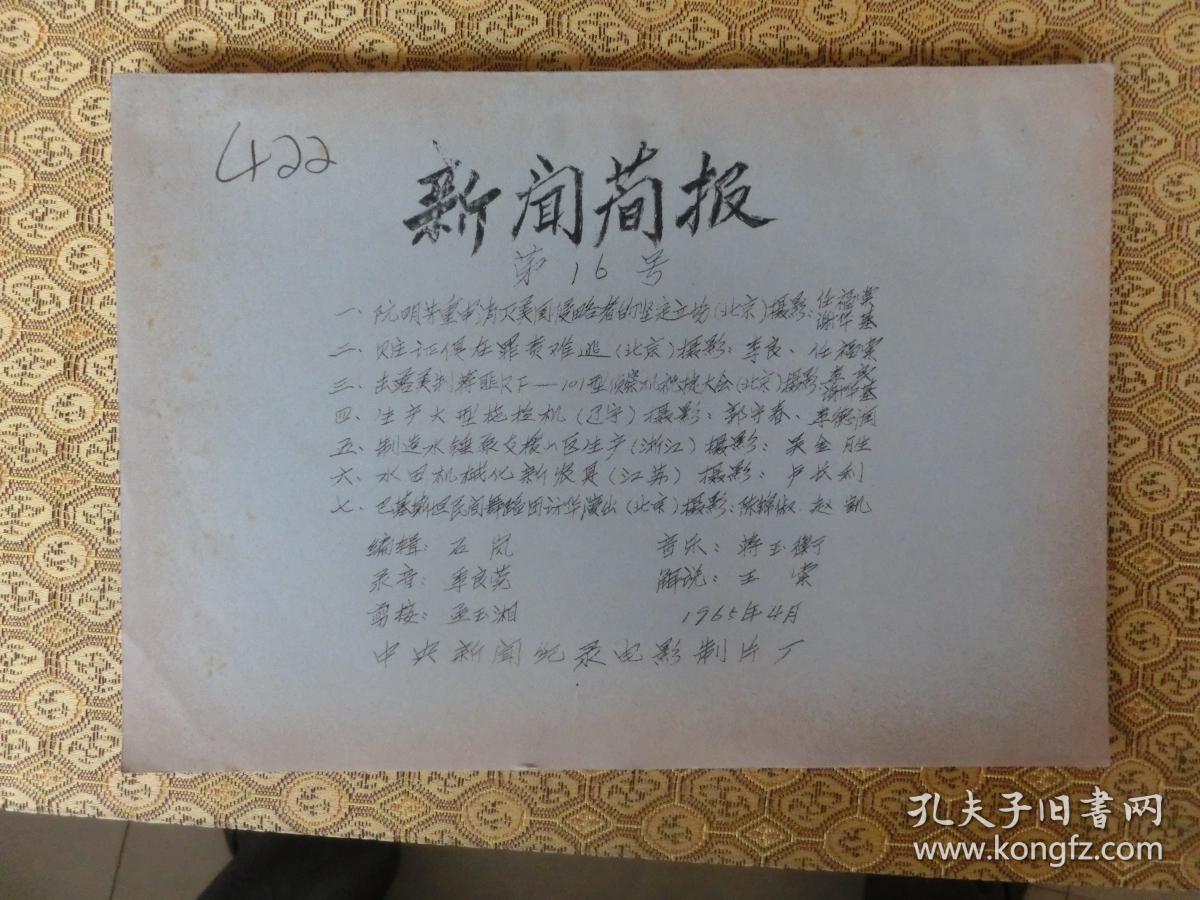 422
新闻简报
第16号
一、阮明珠重申消灭美国侵略者的坚定立场(北京)摄影:任福棠
谢华基
二、赃证俱在罪责难逃(北京)摄影:李良、任福棠
三、击落美制蒋匪RF—101型侦察机祝捷大会(北京)摄影
谢华基
四、生产大型拖拉机(辽宁)摄影:郭守春、李德润
五、制造水锤泵支援山区生产(浙江)摄影:吴金胜
六、水田机械化新农具(江苏)摄影:卢长利
七、巴基斯坦民间舞蹈团访华演出(北京)摄影:陈锦俶、赵凯
编辑:石岚 音乐:蒋玉衡
录音:李良 解说:王
剪接:孟玉湘 1965年4月
中央新闻纪录电影制片厂
孔夫子旧书网
www.kongfz.com